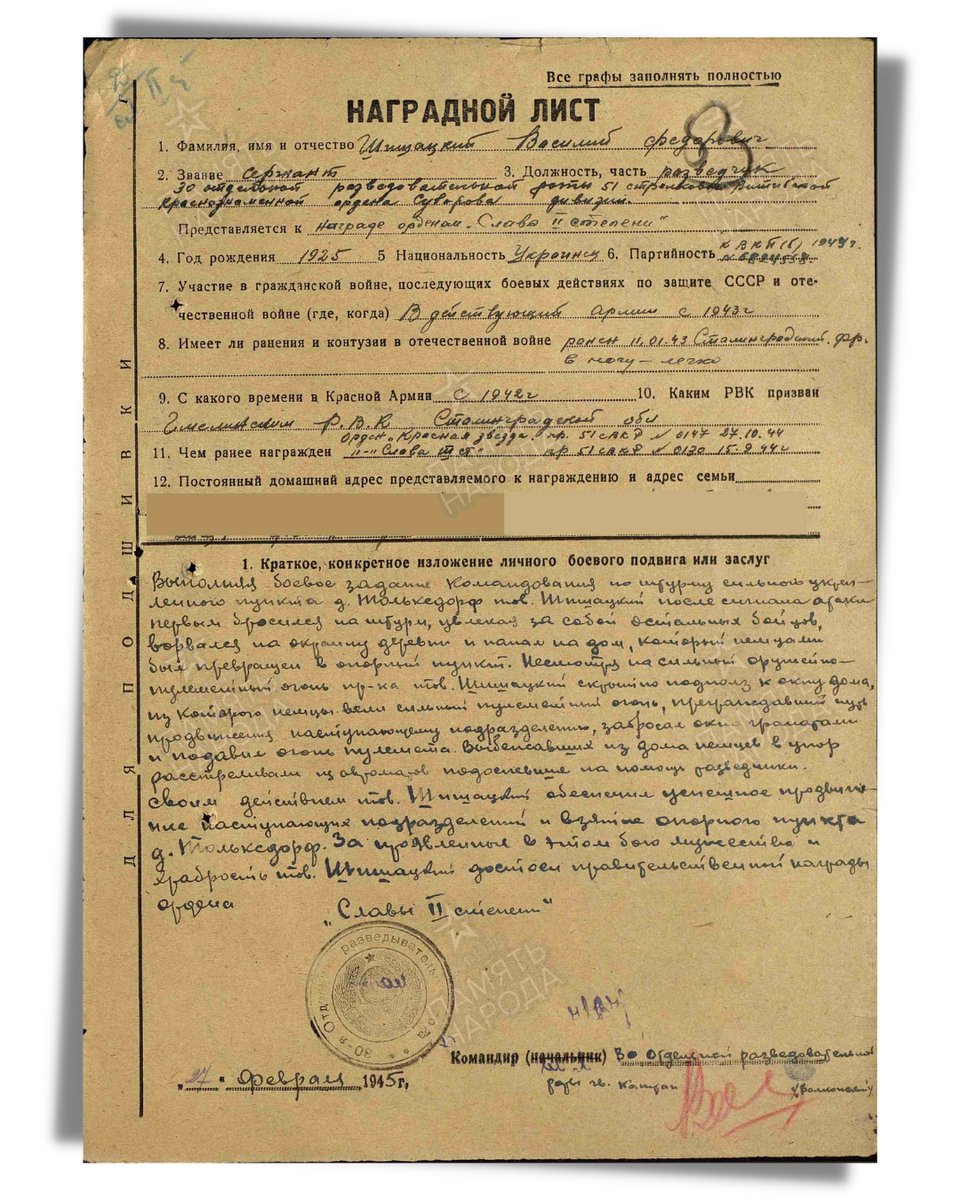 Все графы заполнять полностью
НАГРАДНОЙ ЛИСТ
1. Фамилия, имя и отчество Шишацкий Василий Федорович
2. Звание Сержант 3. Должность, часть разведчик
30 отдельной разведовательной роты 51 стрелковой Витебской
Краснознаменной ордена Суворова дивизии.
Представляется к награде орденом „Слава II степени"
4. Год рождения 1925 5 Национальность Украинец 6. Партийность к ВКП(б) 1944г.
7. Участие в гражданской войне, последующих боевых действиях по защите СССР и оте-
чественной войне (где, когда) В действующий армии с 1943г
8. Имеет ли ранения и контузии в отечественной войне ранен 11.01.43 Сталинградский фр.
в ногу – легко
9. С какого времени в Красной Армии с 1942г 10. Каким РВК призван
Р.В.К Сталинградской обл
Орден „Красная звезда" пр. 51 САКД № 0147 27.10.44
11. Чем ранее награжден –"– „Слава III ст" пр 51 САКД № 0130 15.9 44г
12. Постоянный домашний адрес представляемого к награждению и адрес семьи
ДЛЯ ПОДШИВКИ
1. Краткое, конкретное изложение личного боевого подвига или заслуг
Выполняя боевое задание командования по штурму сильно укреп-
ленного пункта д. Тольксдорф тов. Шишацкий после сигнала атаки
первым бросился на штурм, увлекая за собой остальных бойцов,
ворвался на окраину деревни и напал на дом, который немцами
был превращен в опорный пункт. Несмотря на сильный оружейно-
пулеметный огонь пр-ка тов. Шишацкий скрытно подполз к окну дома,
из которого немцы вели сильный пулеметный огонь, преграждавший путь
продвижения наступающему подразделению, забросал окно гранатами
и подавил огонь пулемета. Выбежавших из дома немцев в упор
расстреливали из автоматов подоспевшие на помощь разведчики.
Своим действием тов. Шишацкий обеспечил успешное продвиже-
ние наступающих подразделений и взятие опорного пункта
д. Тольксдорф. За проявленные в этом бою мужество и
храбрость тов. Шишацкий достоен правительственной награды
ордена „Славы II степени"
30-я Отд. разведыватель
Командир (начальник) 30 Отдельной разведовательной
роты гв. капитан /Волконский/
„27" февраля 1945г,
ПАМЯТЬ НАРОДА